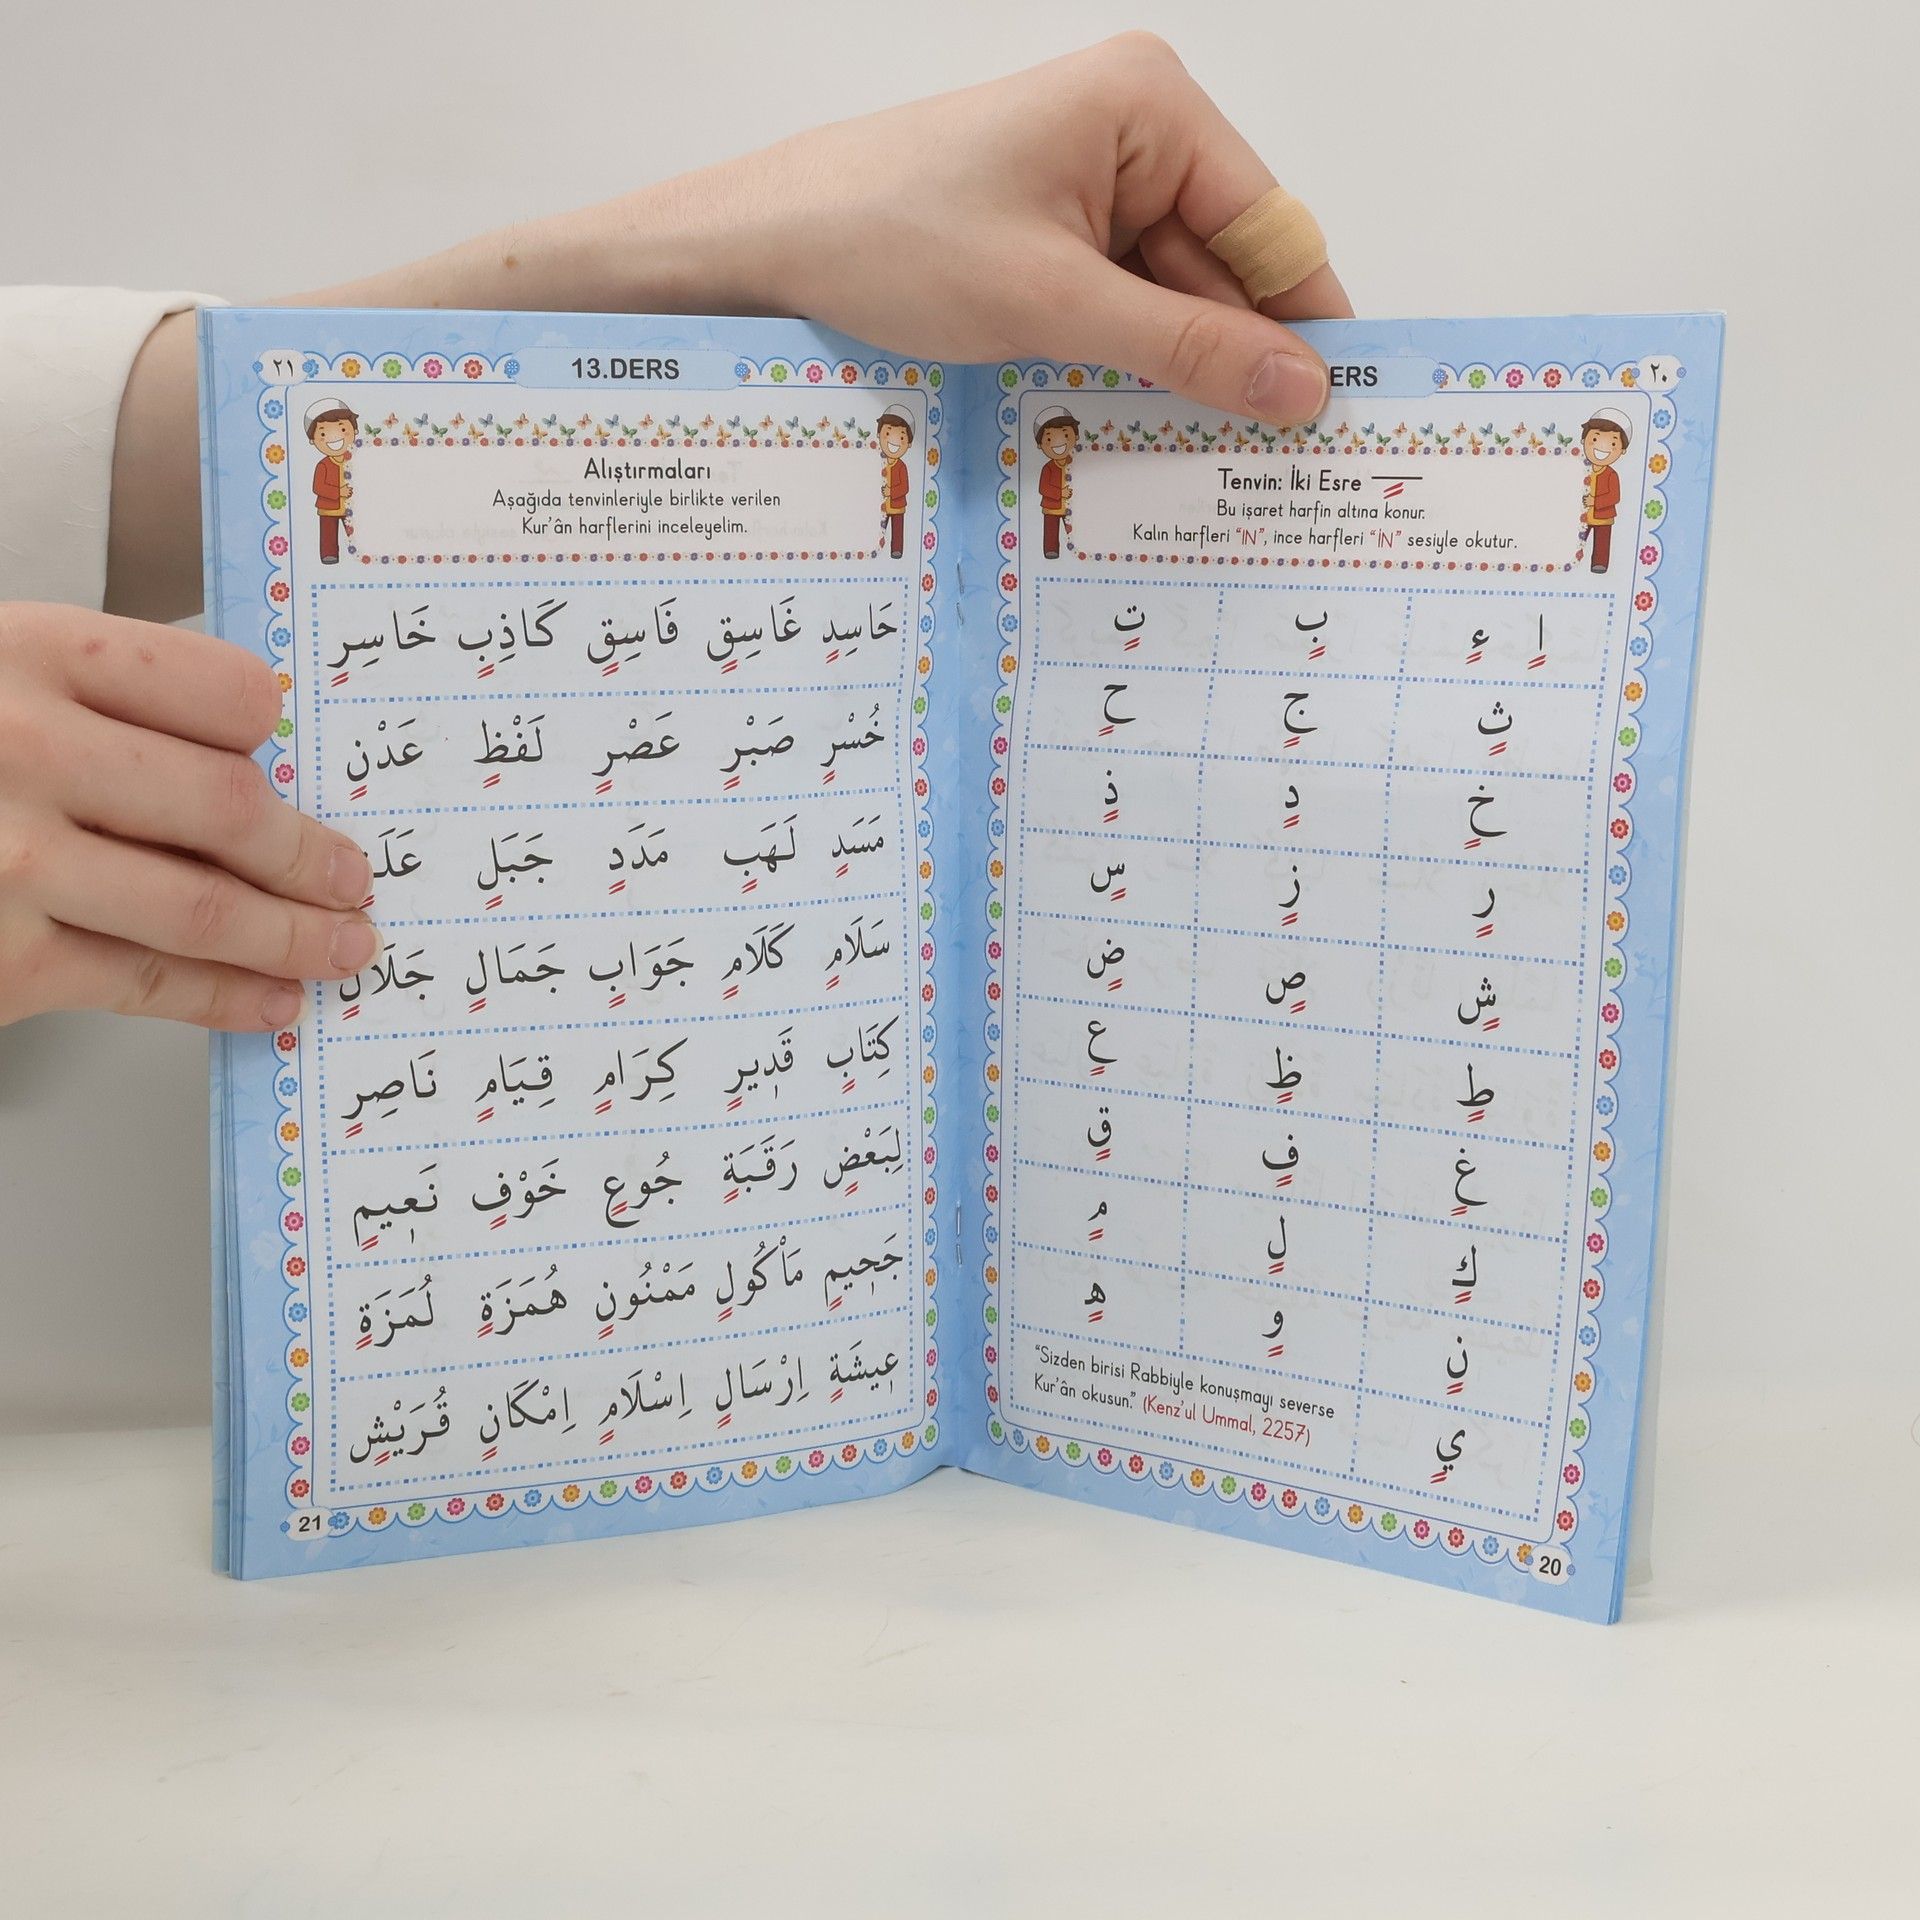 ٢٠
ERS
Tenvin: İki Esre
Bu işaret harfin altına konur.
Kalın harfleri “IN”, ince harfleri “İN” sesiyle okutur.
اٍ ءٍ بٍ تٍ
ثٍ جٍ حٍ
خٍ دٍ ذٍ
رٍ زٍ سٍ
شٍ صٍ ضٍ
طٍ ظٍ عٍ
غٍ فٍ قٍ
كٍ لٍ مٍ
نٍ وٍ هٍ
يٍ
“Sizden birisi Rabbiyle konuşmayı severse
Kur’ân okusun.” (Kenz’ul Ummal, 2257)
20
٢١
13.DERS
Alıştırmaları
Aşağıda tenvinleriyle birlikte verilen
Kur’ân harflerini inceleyelim.
حَاسِدٍ غَاسِقٍ فَاسِقٍ كَاذِبٍ خَاسِرٍ
خُسْرٍ صَبْرٍ عَصْرٍ لَفْظٍ عَدْنٍ
مَسَدٍ لَهَبٍ مَدَدٍ جَبَلٍ
سَلَامٍ كَلَامٍ جَوَابٍ جَمَالٍ جَلَالٍ
كِتَابٍ قَدِيرٍ كِرَامٍ قِيَامٍ نَاصِرٍ
لِبَعْضٍ رَقَبَةٍ جُوعٍ خَوْفٍ نَعِيمٍ
جَحِيمٍ مَأْكُولٍ مَمْنُونٍ هُمَزَةٍ لُمَزَةٍ
عِيشَةٍ اِرْسَالٍ اِسْلَامٍ اِمْكَانٍ قُرَيْشٍ
21